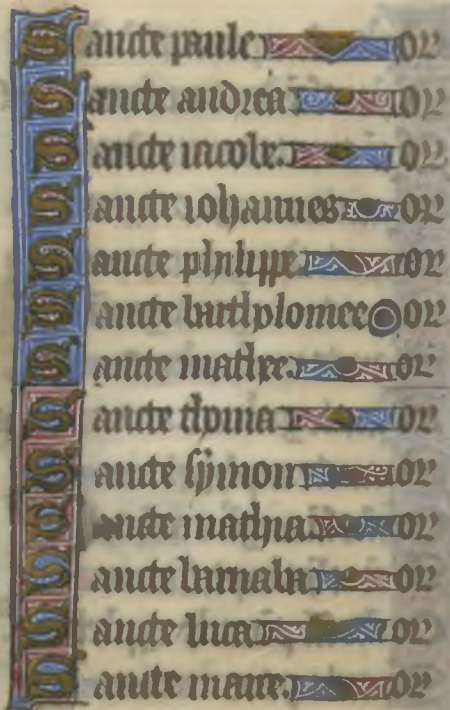 Sancte paule or
Sancte andrea or
Sancte iacobe or
Sancte iohannes or
Sancte philippe or
Sancte bartholomee or
Sancte mathee or
Sancte thoma or
Sancte symon or
Sancte mathia or
Sancte barnaba or
Sancte luca or
Sancte marce or